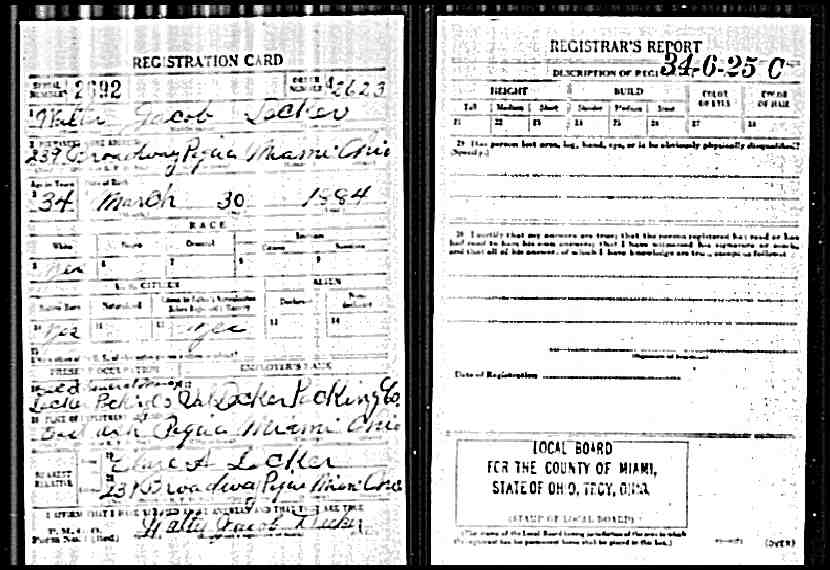 REGISTRATION CARD
SERIAL NUMBER 2692 ORDER NUMBER 2623
1 Walter Jacob Decker
2 PERMANENT HOME ADDRESS
239 Broadway Piqua Miami Ohio
Age in Years Date of Birth
3 34 March 30 1884
RACE
White Negro Oriental Indian
Citizen
5 Yes 6 7 8 9
U. S. CITIZEN ALIEN
Native Born Naturalized Declarant
10 Yes 11 12 Yes 13 14
15
PRESENT OCCUPATION EMPLOYER'S NAME
Decker Packing Co Val Decker Packing Co
East Ash Piqua Miami Ohio
NEAREST RELATIVE
Clare A Decker
239 Broadway Piqua Miami Ohio
I AFFIRM THAT I HAVE VERIFIED ABOVE ANSWERS AND THAT THEY ARE TRUE
P. M. G. O.
Form No. 1 (Red)
Walter Jacob Decker
REGISTRAR'S REPORT
34-6-25 C
DESCRIPTION OF REGI
HEIGHT BUILD COLOR OF EYES COLOR OF HAIR
Tall Medium Short Slender Medium Stout
21 22 23 24 25 26 27 28
29 Has person lost arm, leg, hand, eye, or is he obviously physically disqualified?
(Specify.)
30 I certify that my answers are true; that the person registered has read or has
had read to him his own answers; that I have witnessed his signature or mark,
and that all of his answers of which I have knowledge are true, except as follows:
(Signature of Registrar)
Date of Registration
LOCAL BOARD
FOR THE COUNTY OF MIAMI,
STATE OF OHIO, TROY, OHIO.
(STAMP OF LOCAL BOARD)
(The stamp of the Local Board having jurisdiction of the area in which
the registrant has his permanent home shall be placed in this box.)
(OVER)